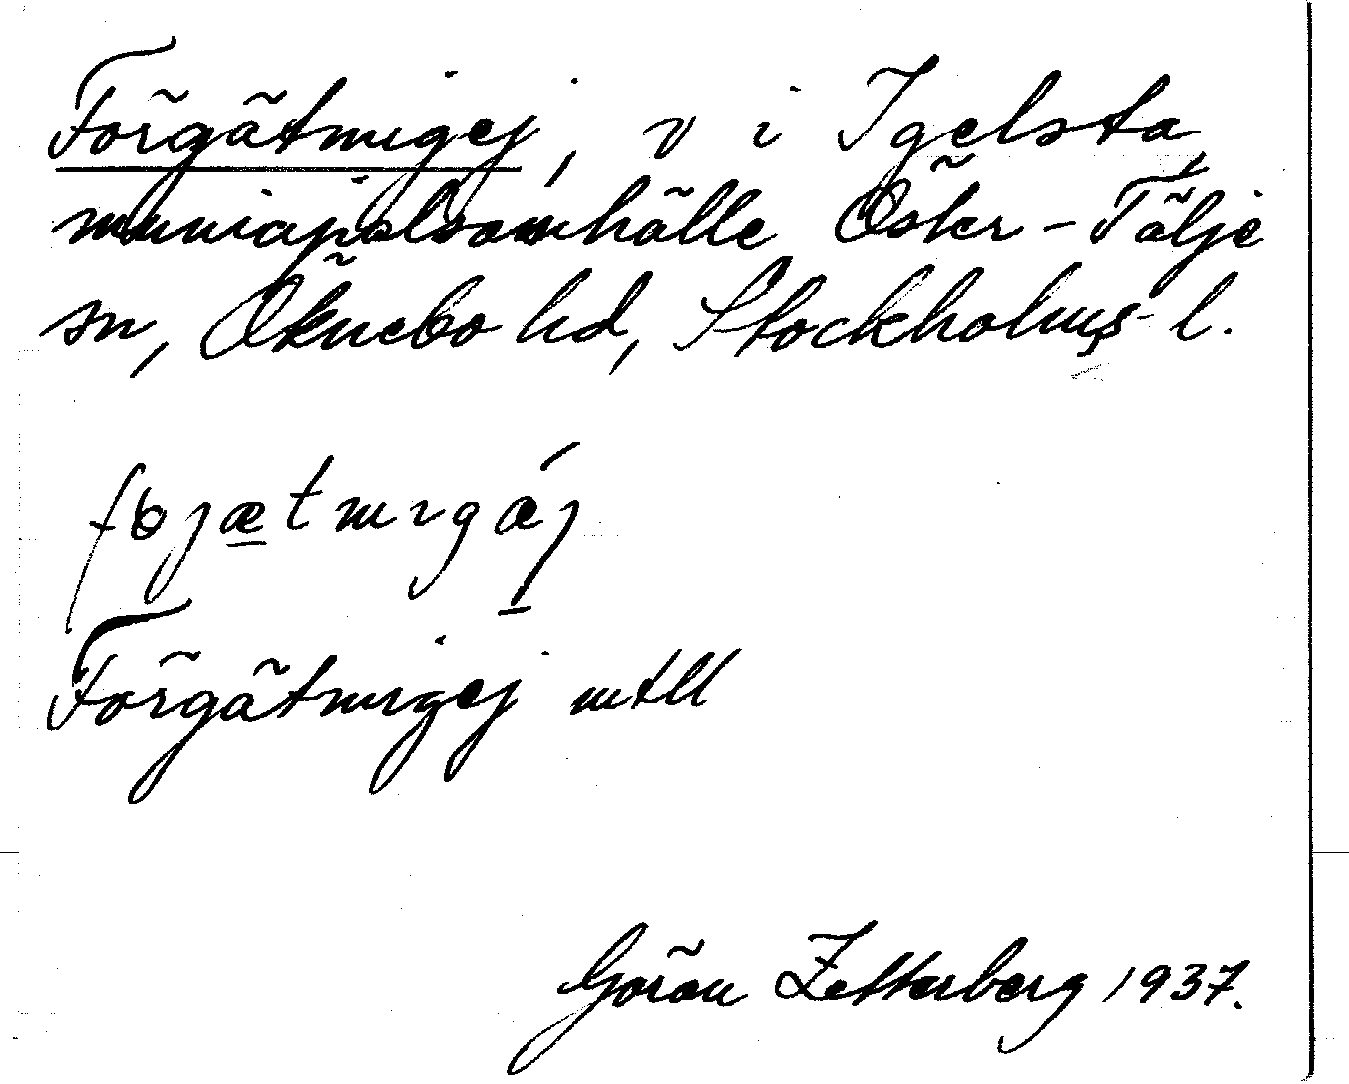 Förgätmigej, v i Igelsta
municipalsamhälle Öster-Tälje
sn, Öknebo hd, Stockholms l.
Förgätmigej mtll
Göran Zetterberg 1937.